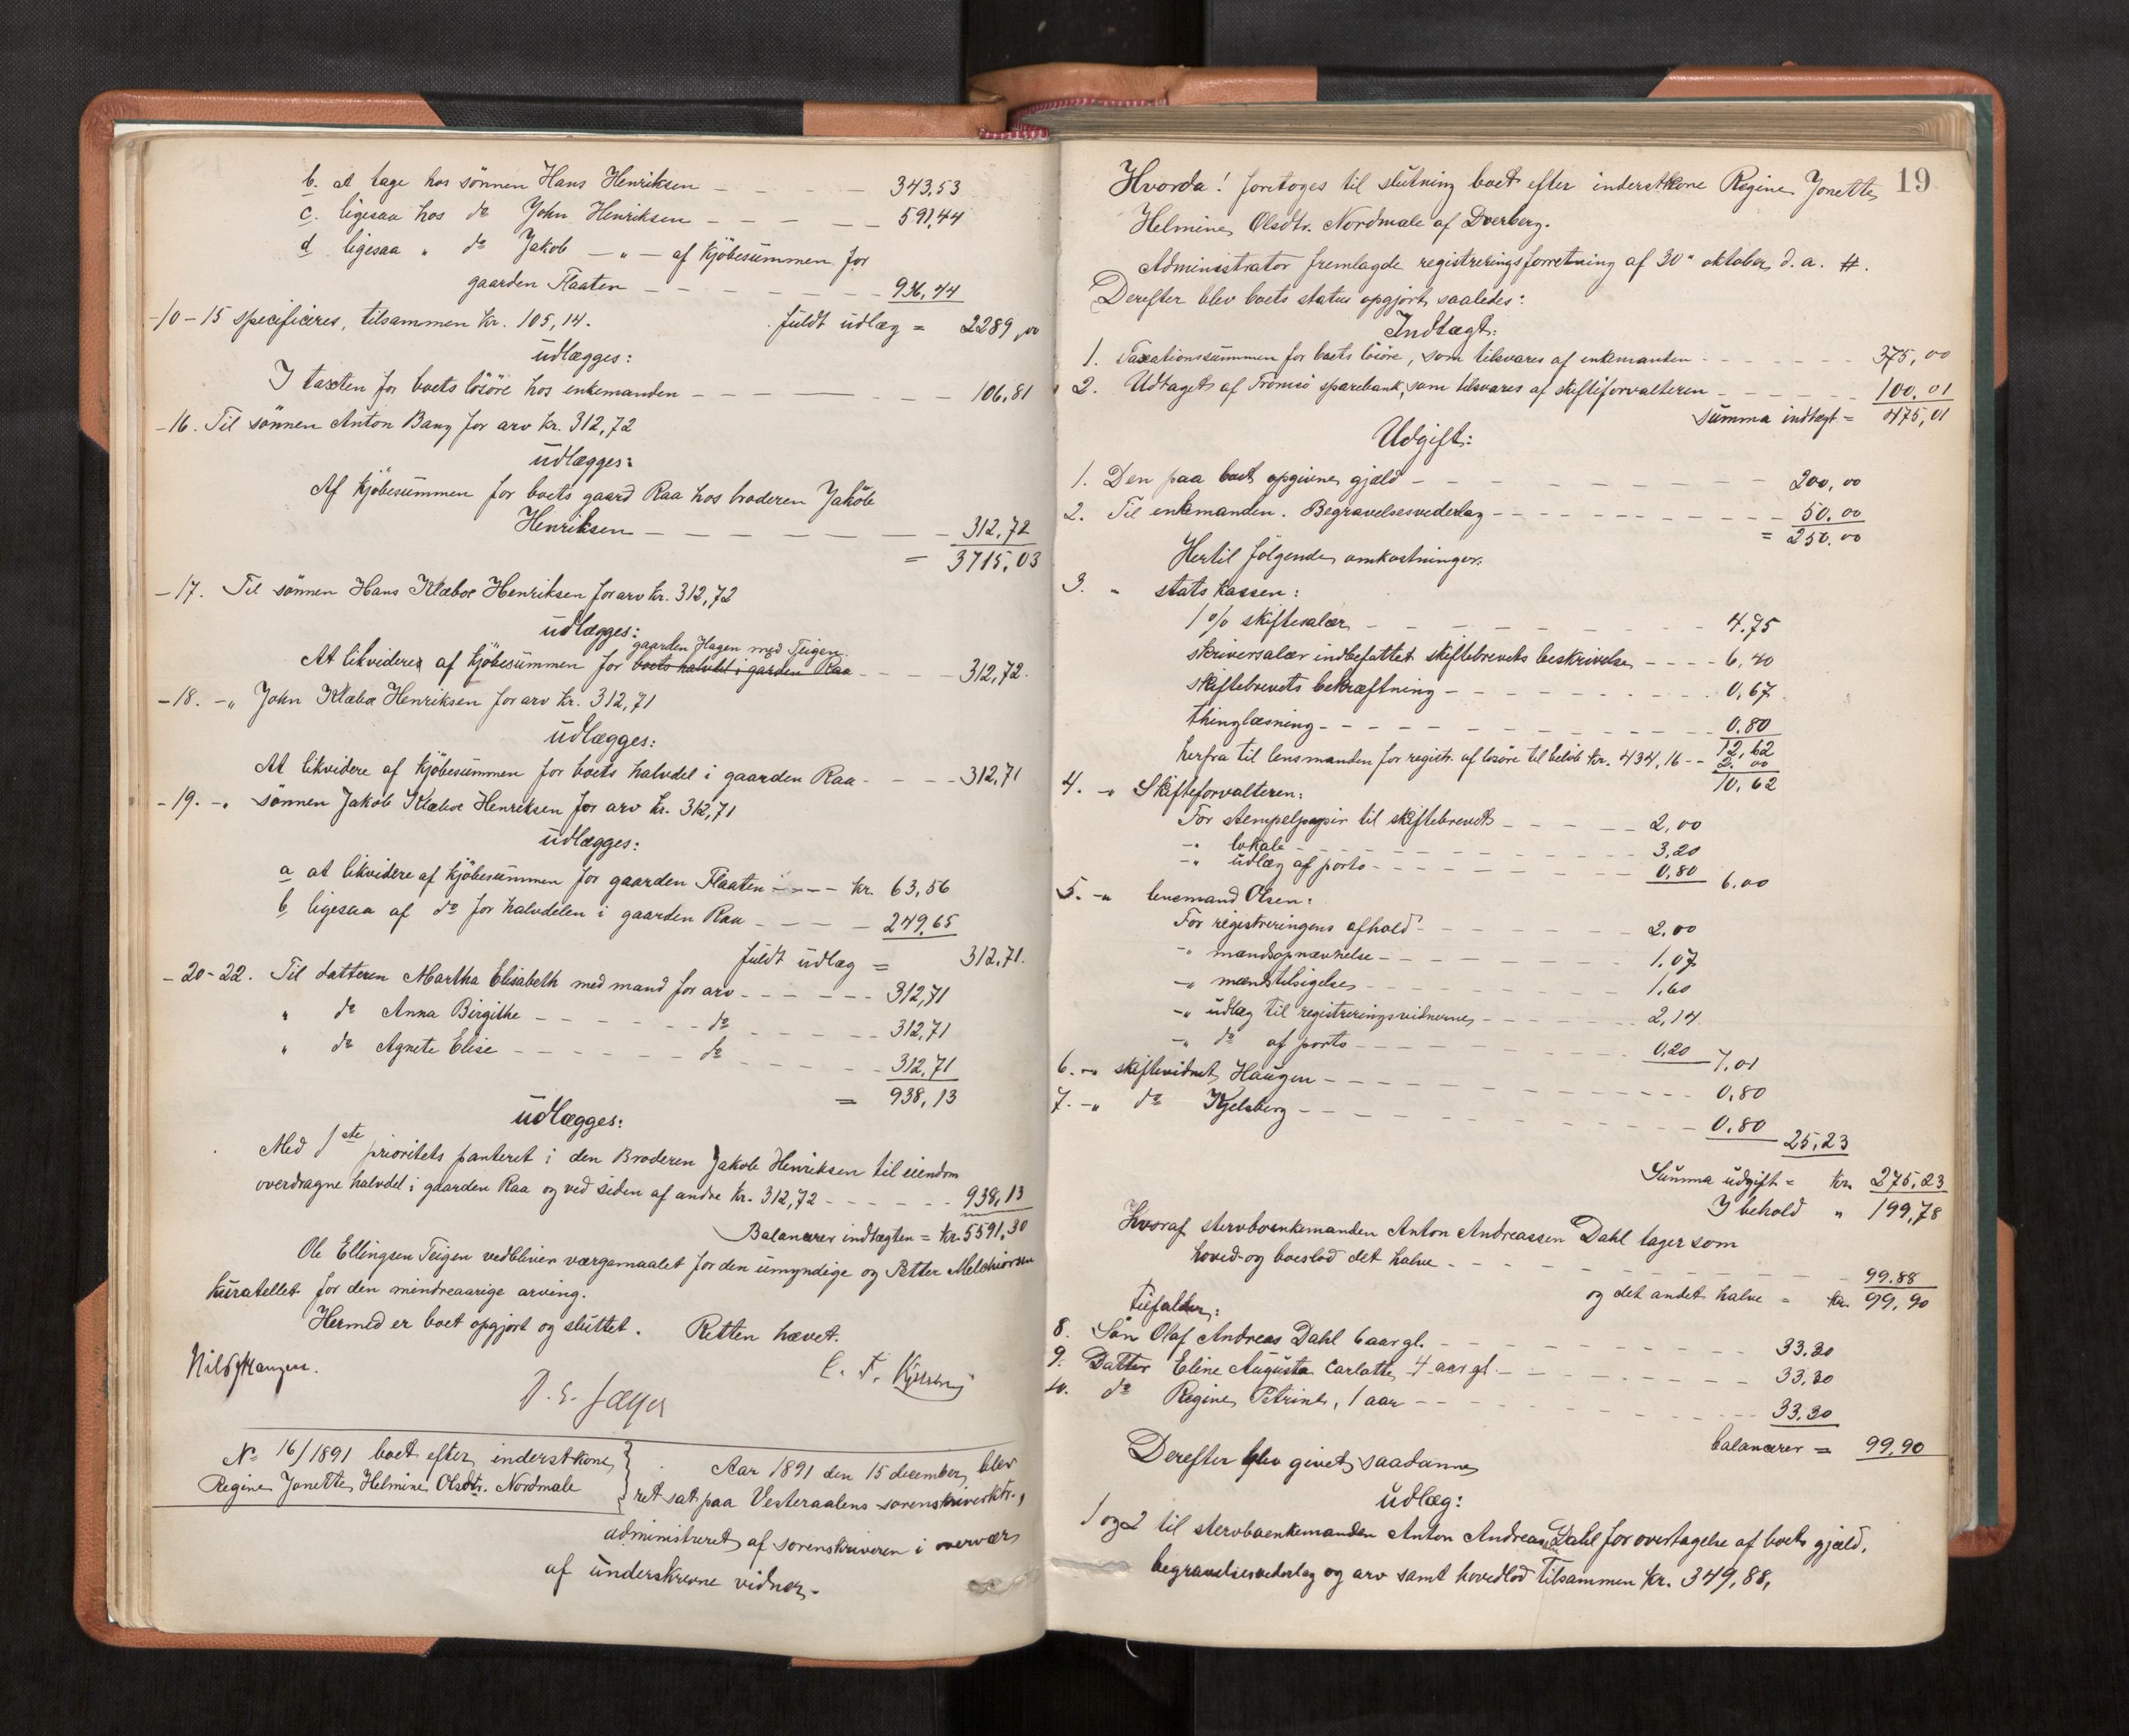 b. at tage hos sönnen Hans Henriksen — — — — 343,53
c. ligesaa hos do John Henriksen — — — — 591,44
d. ligesaa " do Jakob — " — af kjöbesummen for
gaarden Flaaten — — — — — 936,44
-10-15 specificeres, tilsammen kr. 105,14. fuldt udlæg = 2289,00
udlægges:
I taxten for boets lösöre hos enkemanden — — — — — 106,81
-16. Til sönnen Anton Bang for arv kr. 312,72
udlægges:
Af kjöbesummen for boets gaard Raa hos broderen Jakob
Henriksen — — — — — — 312,72
= 3715,03
-17. Til sönnen Hans Klæboe Henriksen for arv kr. 312,72
udlægges:
gaarden Hagen med Teigen.
At likvidere af kjöbesummen for boets halvdel i gaarden Raa — — — 312,72.
-18. -" John Klæboe Henriksen for arv kr. 312,71
udlægges:
At likvidere af kjöbesummen for boets halvdel i gaarden Raa — — — 312,71
-19. -" sönnen Jakob Klæboe Henriksen for arv kr. 312,71
udlægges:
a at likvidere af kjöbesummen for gaarden Flaaten — — — kr. 63,56
b ligesaa af do for halvdelen i gaarden Raa — — — 249,65
fuldt udlæg = 312,71.
-20-22. Til datteren Martha Elisabeth med mand for arv — — — 312,71
" do Anna Birgithe — — — — do — — — 312,71
" do Agnete Elise — — — — do — — — 312,71
= 938,13
udlægges:
Med 1ste prioritets panteret i den Broderen Jakob Henriksen til eiendom
overdragne halvdel i gaarden Raa og ved siden af andre kr. 312,72 — — — 938,13
Balancerer indtægten = kr. 5591,30
Ole Ellingsen Teigen vedbliver værgemaalet for den umyndige og Petter Melchiorsen
kuratellet for den mindreaarige arving.
Hermed er boet opgjort og sluttet. Retten hævet.
D. E. Jæger
No 16/1891 boet efter inderstkone
Regine Jonette Helmine Olsdtr. Nordmale
Aar 1891 den 15 december blev
ret sat paa Vesteraalens sorenskriverktr.,
administreret af sorenskriveren i overvær
af underskrevne vidner.
19
Hvorda! foretoges til slutning boet efter inderstkone Regine Jonette
Helmine Olsdtr. Nordmale af Dverberg.
Administrator fremlagde registreringsforretning af 30" oktober d. a. #.
Derefter blev boets status opgjort saaledes:
Indtægt:
1. Taxationssummen for boets lösöre, som tilsvares af enkemanden — — — 375,00
2. Udtaget af Tromsö sparebank, som tilsvares af skifteforvalteren — — — 100.01
Summa indtægt = 475,01
Udgift:
1. Den paa boet opgivne gjæld — — — — 200,00
2. Til enkemanden. Begravelsesvederlag — — — — 50.00
= 250.00
Hertil fölgende omkostninger.
3. " statskassen:
1% skiftesalær — — — — 4.75
skriversalær indbefattet skiftebrevets beskrivelse — — — 6,40
skiftebrevets bekræftning — — — — 0,67
thinglæsning — — — — 0.80
12,62
herfra til lensmanden for registr. af lösöre til belöb kr. 434,16 — — 2.00
10,62
4. -" Skifteforvalteren:
For stempelpapir til skiftebrevet — — — 2,00
-" lokale — — — 3,20
-" udlæg af porto — — — 0,80 6.00
5. -" lensmand Olsen:
For registreringens afhold — — — 2.00
-" mandsopnævnelse — — — 1.07
-" mændstilsigelse — — — 1.60
-" udlæg til registreringsvidnerne — — — 2,14
-" do af porto — — — 0,20 7,01
6. -" skiftevidnet Haugen — — — — 0,80
7. -" do Kjelsberg — — — — 0.80 25,23
Summa udgift = kr. 275,23
I behold " 199,78
Hvoraf stervboenkemanden Anton Andreassen Dahl tager som
hoved- og boeslod det halve — — — — 99.88
og det andet halve = kr. 99,90
tilfalder:
8. Sön Olaf Andreas Dahl 6 aar gl. — — — 33.30
9. Datter Eline Augusta Carlotte 4 aar gl. — — — 33,30
10. do Regine Petrine, 1 aar — — — 33.30
balancerer = 99,90
Derefter blev givet saadanne
udlæg:
1 og 2 til stervboenkemanden Anton Andreassen Dahl for overtagelse af boets gjæld,
begravelsesvederlag og arv samt hovedlod tilsammen kr. 349,88,